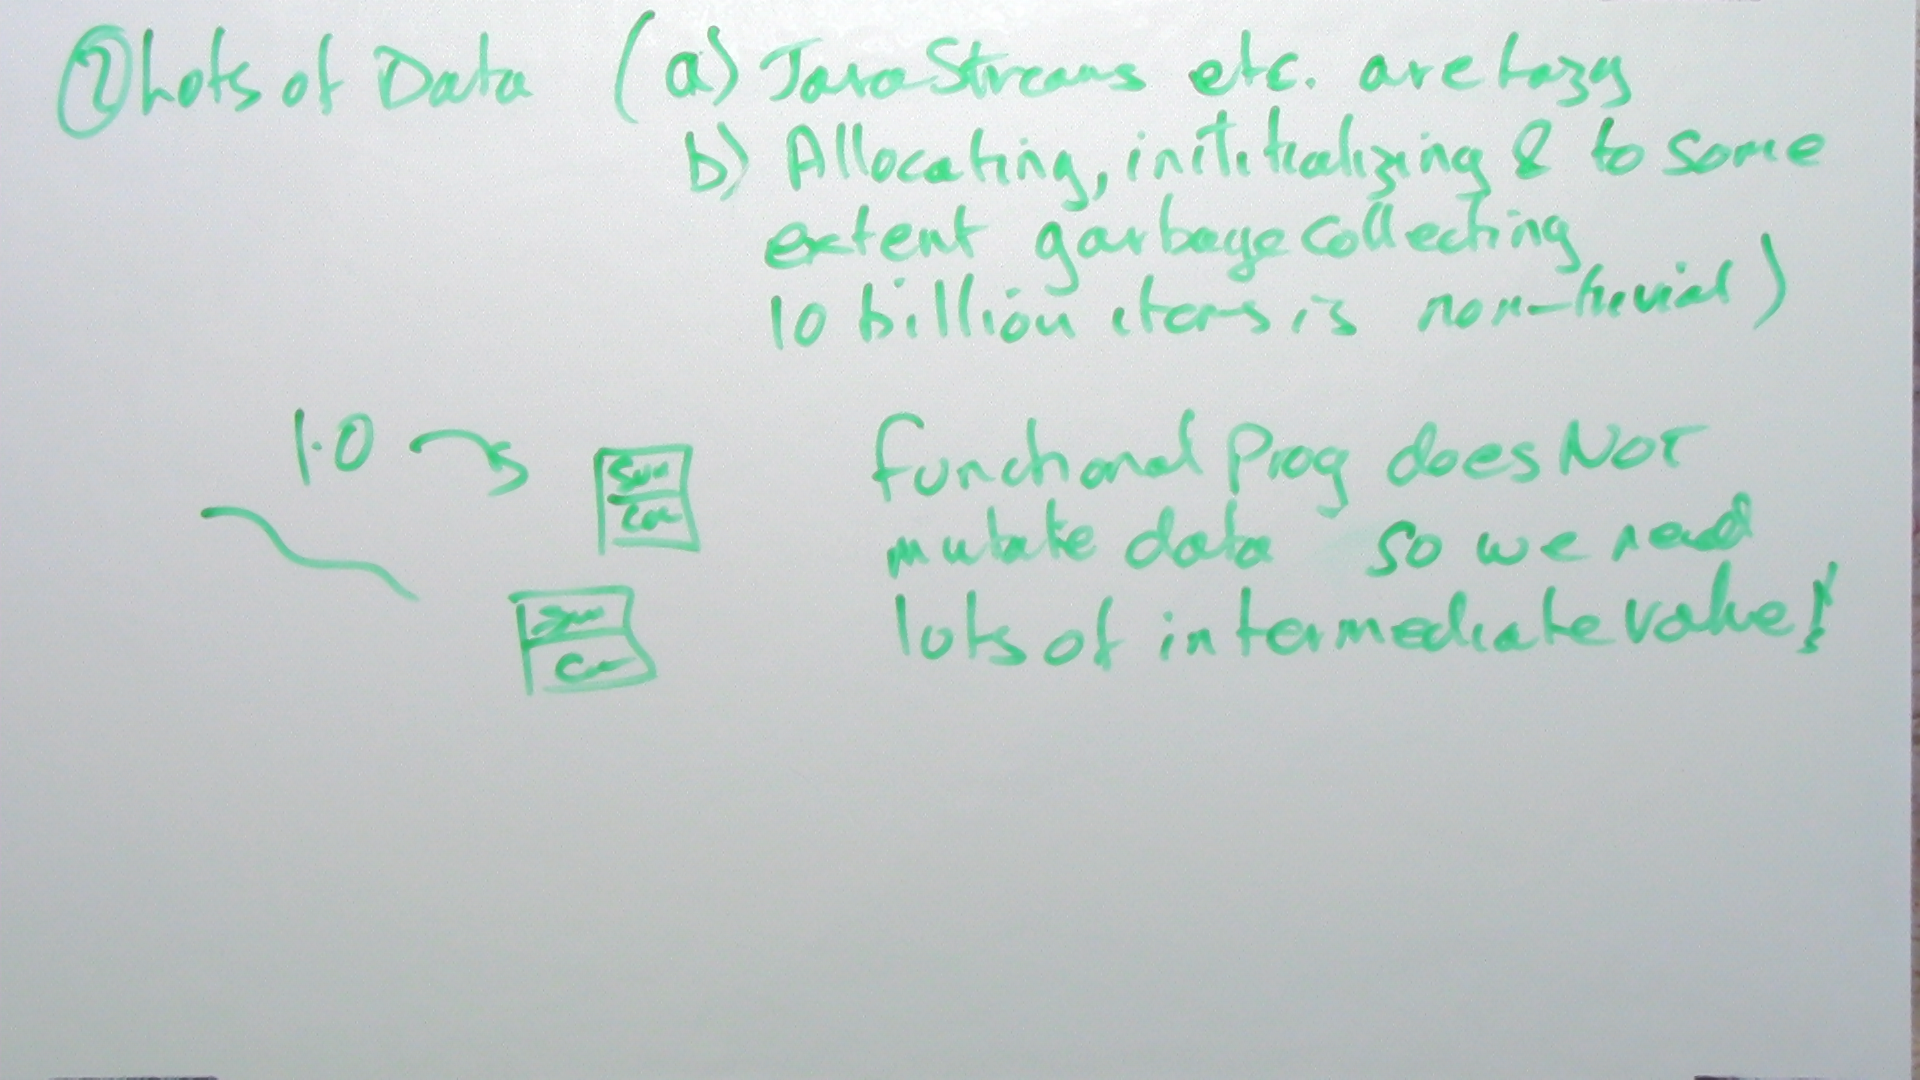 ② Lots of Data (a) Java Streams etc. are lazy
b) Allocating, inititializing & to some
extent garbage collecting
10 billion items is non-trivial)
1.0
Sum
Cou
Functional Prog does NOT
mutate data so we need
lots of intermediate value!
Sum
Cou